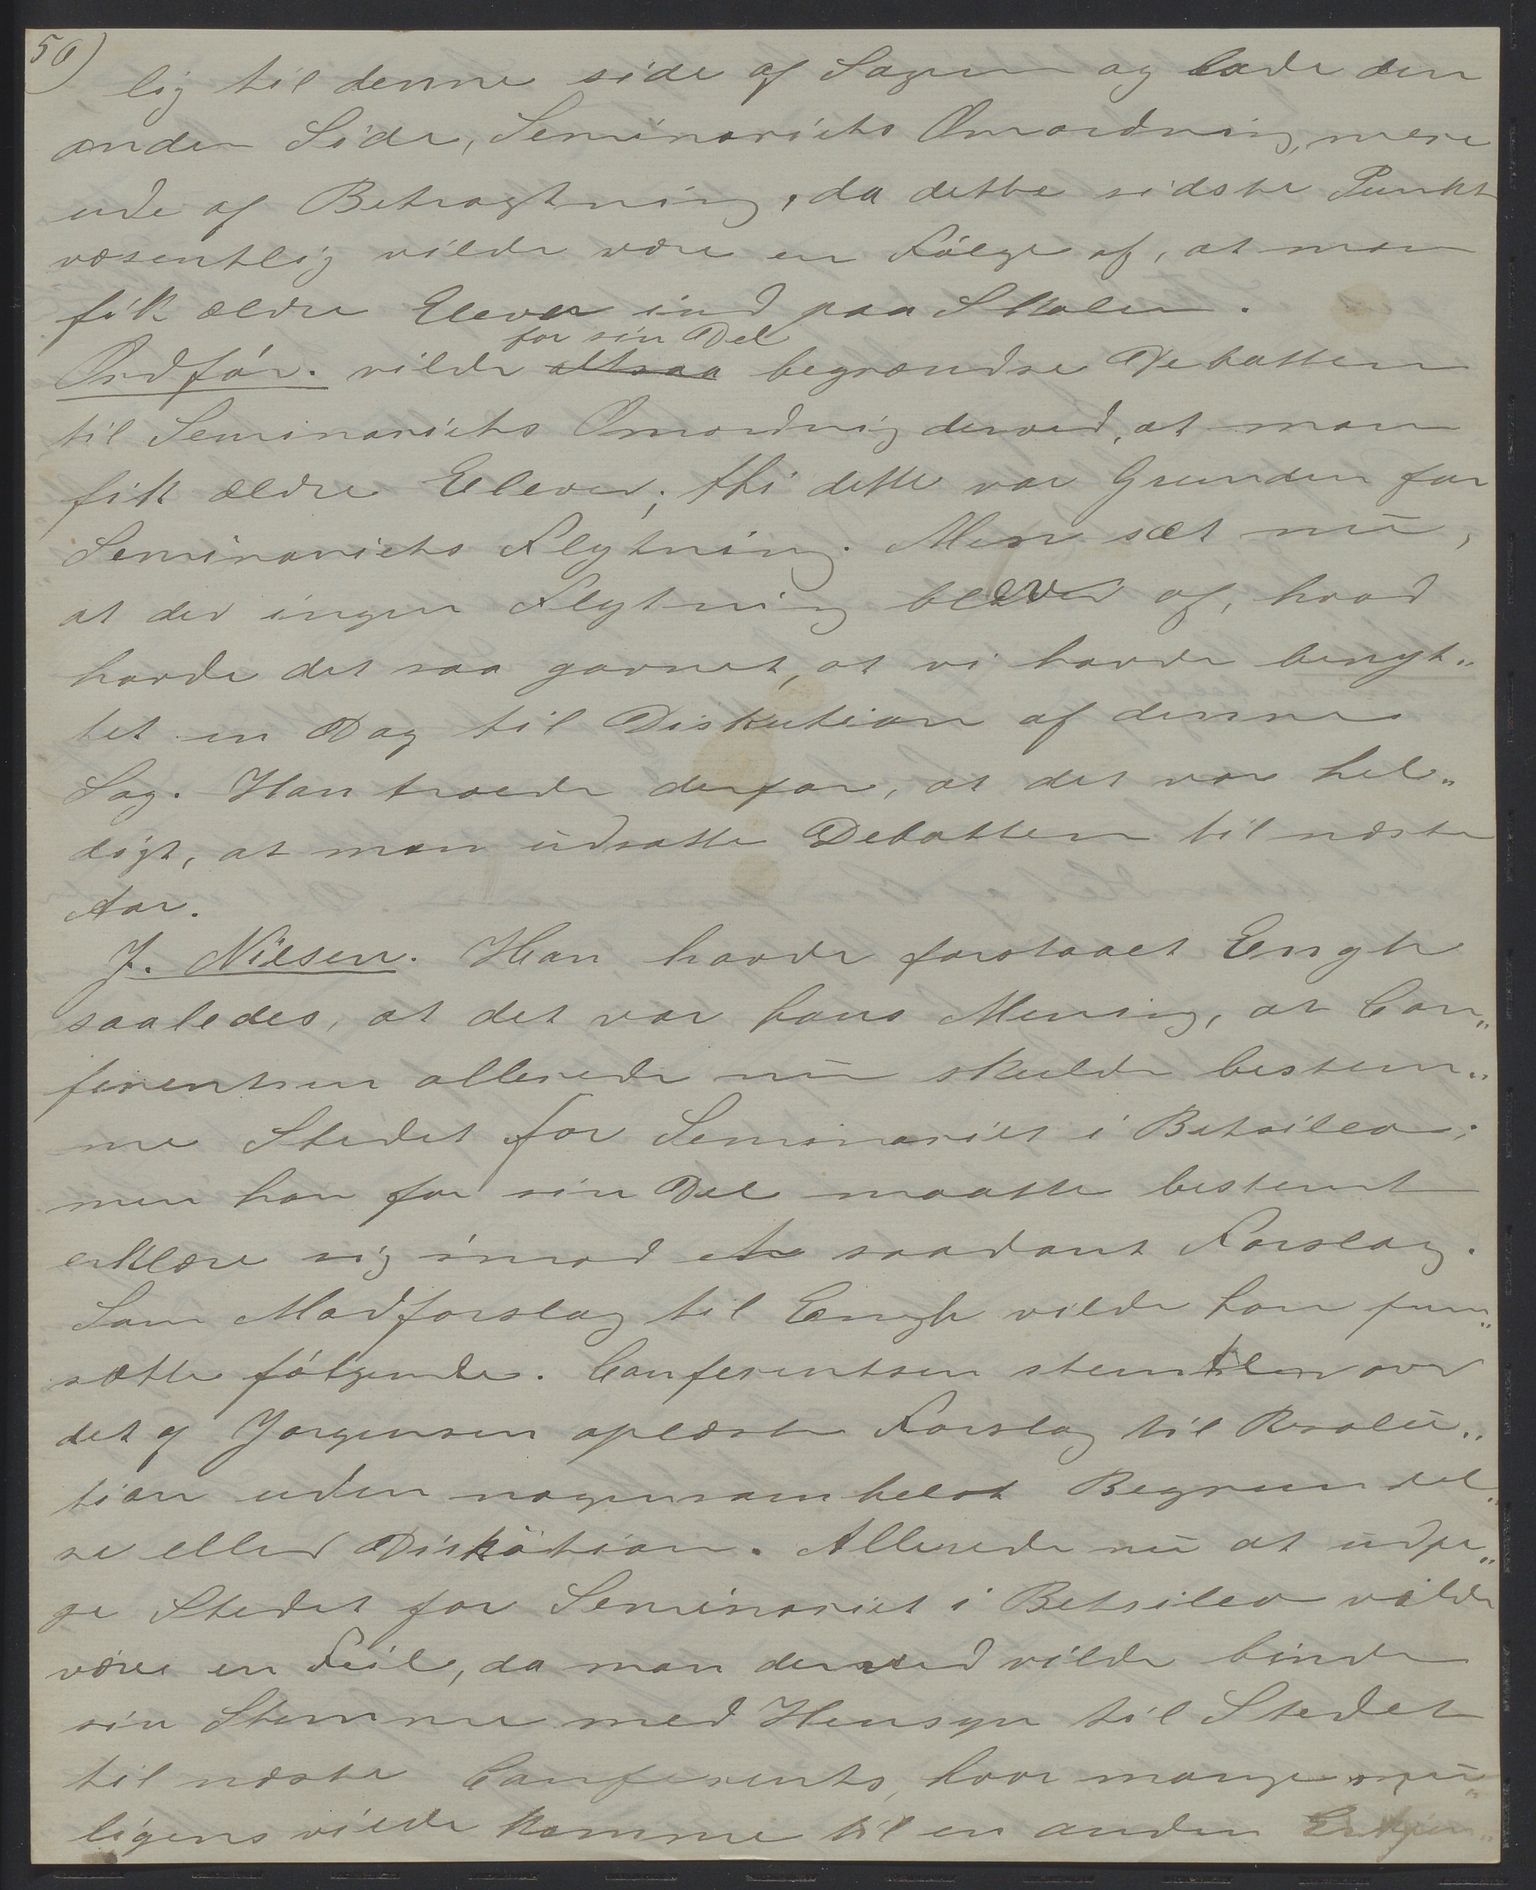 50)
lig til denne side af Sagen og lade den
anden Side, Seminariets Omordning, mere
ude af Betragtning, da dette sidste Punkt
væsentlig vilde være en Følge af, at man
fik ældre Elever ind paa Skolen.
for sin Del
Ordfør. vilde altsaa begrændse Debatten
til Seminariets Omordnig derved, at man
fik ældre Elever; thi dette var Grunden for
Seminariets Flytning. Men sæt nu,
at der ingen Flytning blev af, hvad
havde det saa gavnet, at vi havde benyt„
tet en Dag til Diskution af denne
Sag. Han troede derfor, at det var hel„
digt, at man udsatte Debatten til næste
Aar.
J. Nilsen. Han havde forstaaet Engh
saaledes, at det var hans Mening, at Con„
ferentsen allerede nu skulde bestem„
me Stedet for Seminariet i Betsileo;
men han for sin Del maatte bestemt
erklære sig imod et saadant Forslag.
Som Modforslag til Engh vilde han frem„
sætte følgende. Conferentsen stemmer over
det af Jørgensen oplæste Forslag til Resolu„
tion uden nogensomhelst Begrundel„
se eller Diskution. Allerede nu at udpe„
ge Stedet for Seminariet i Betsileo vilde
være en Feil, da man derved vilde binde
sin Stemme med Hensyn til Stedet
til næste Conferents, hvor mange mu„
ligens vilde komme til en anden Erkjen„